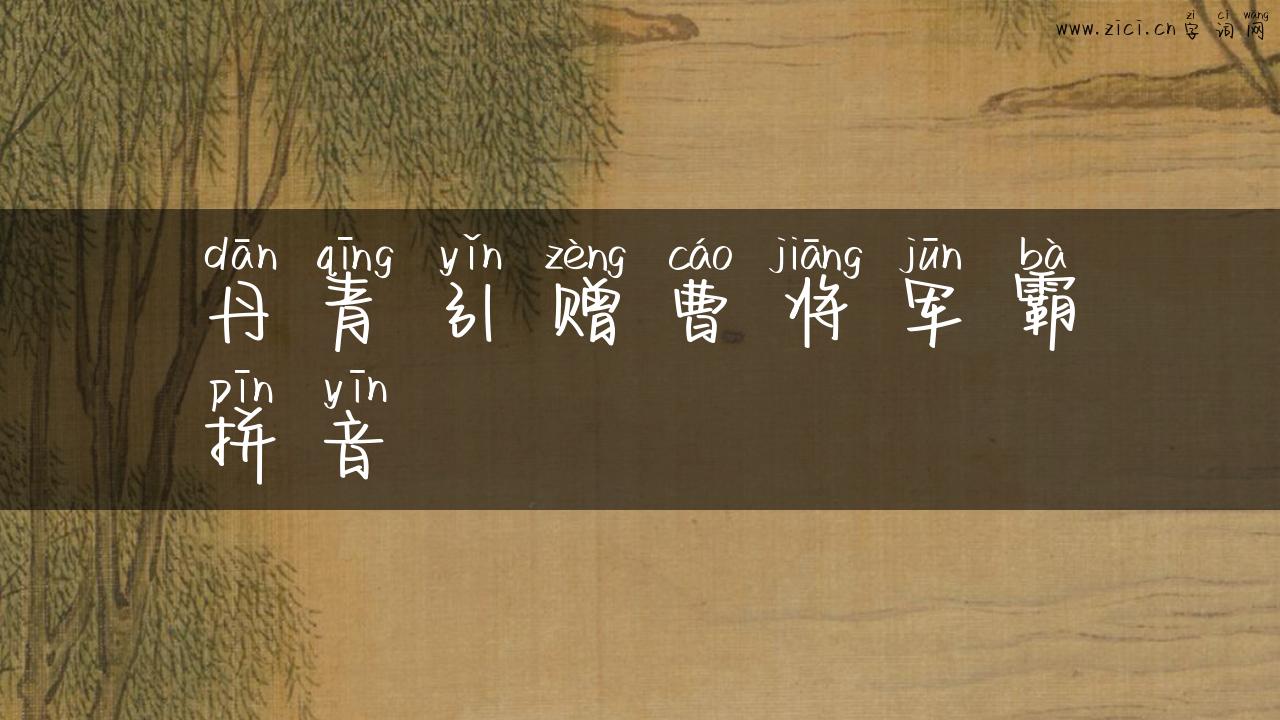 zì cí wǎng
www.zici.cn字词网
dān qīng yǐn zèng cáo jiāng jūn bà
丹青引赠曹将军霸
pīn yīn
拼音